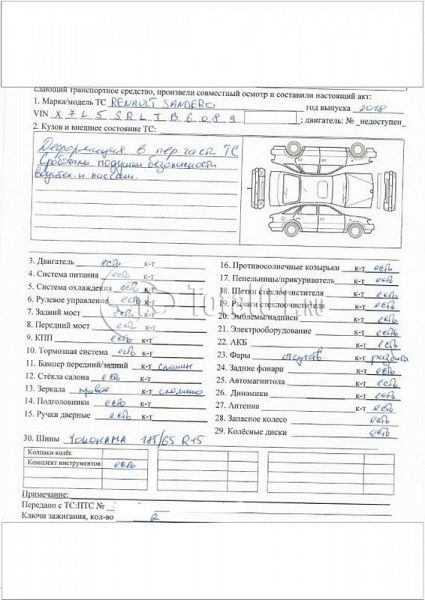 сдающий транспортное средство, произвели совместный осмотр и составили настоящий акт:
1. Марка/модель ТС RENAULT SANDERO год выпуска 2018
VIN X7L5SRLTB6089 ; двигатель: № недоступен
2. Кузов и внешнее состояние ТС:
Деформация в пер. части ТС
Сработали подушки безопасности
водител. и пассаж.
3. Двигатель есть к-т
4. Система питания есть к-т
5. Система охлаждения есть к-т
6. Рулевое управление есть к-т
7. Задний мост есть к-т
8. Передний мост есть к-т
9. КПП есть к-т
10. Тормозная система есть к-т
11. Бампер передний/задний сломан к-т
12. Стёкла салона есть к-т
13. Зеркала правое к-т сломано
14. Подголовники есть к-т
15. Ручки дверные есть к-т
16. Противосолнечные козырьки к-т есть
17. Пепельницы/прикуриватель к-т есть
18. Щетки стеклоочистителя к-т есть
19. Рычаги стеклоочистителя к-т есть
20. Эмблемы/надписи к-т есть
21. Электрооборудование к-т есть
22. АКБ к-т есть
23. Фары отсутств к-т разбита
24. Задние фонари к-т есть
25. Автомагнитола к-т есть
26. Динамики к-т есть
27. Антенна к-т есть
28. Запасное колесо есть
29. Колёсные диски есть
30. Шины YOKOHAMA 185/65 R15
Колпаки колёс
Комплект инструментов есть
Примечание:
Передано с ТС:ПТС №
Ключи зажигания, кол-во 2